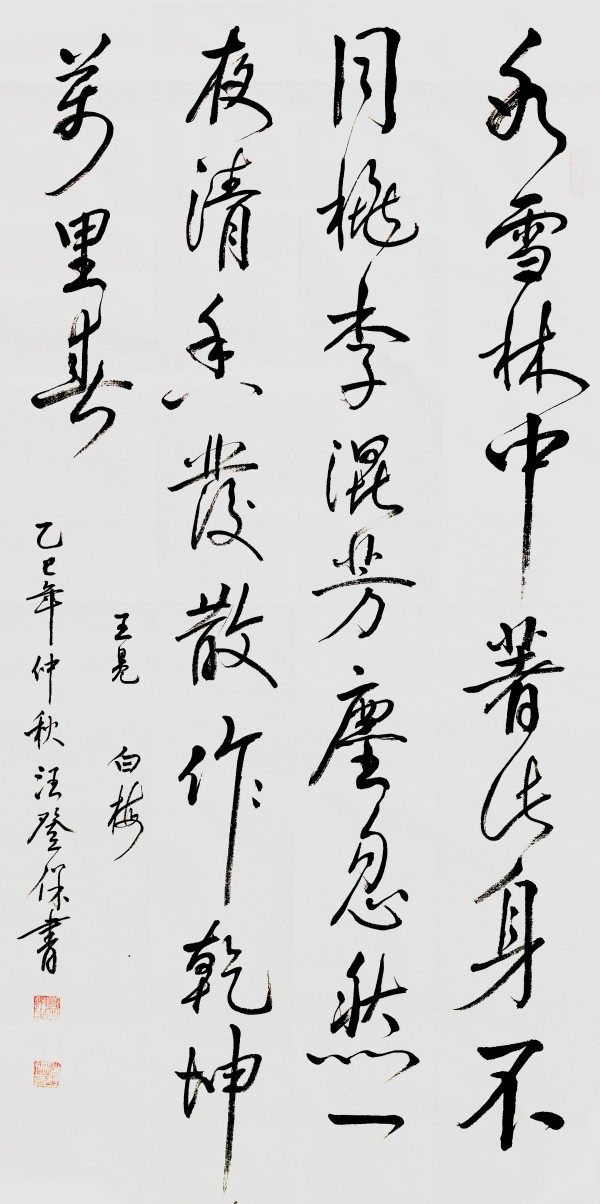 冰雪林中著此身不
同桃李混芳塵忽然一
夜清香發散作乾坤
萬里春
王冕 白梅
乙巳年仲秋汪登保書